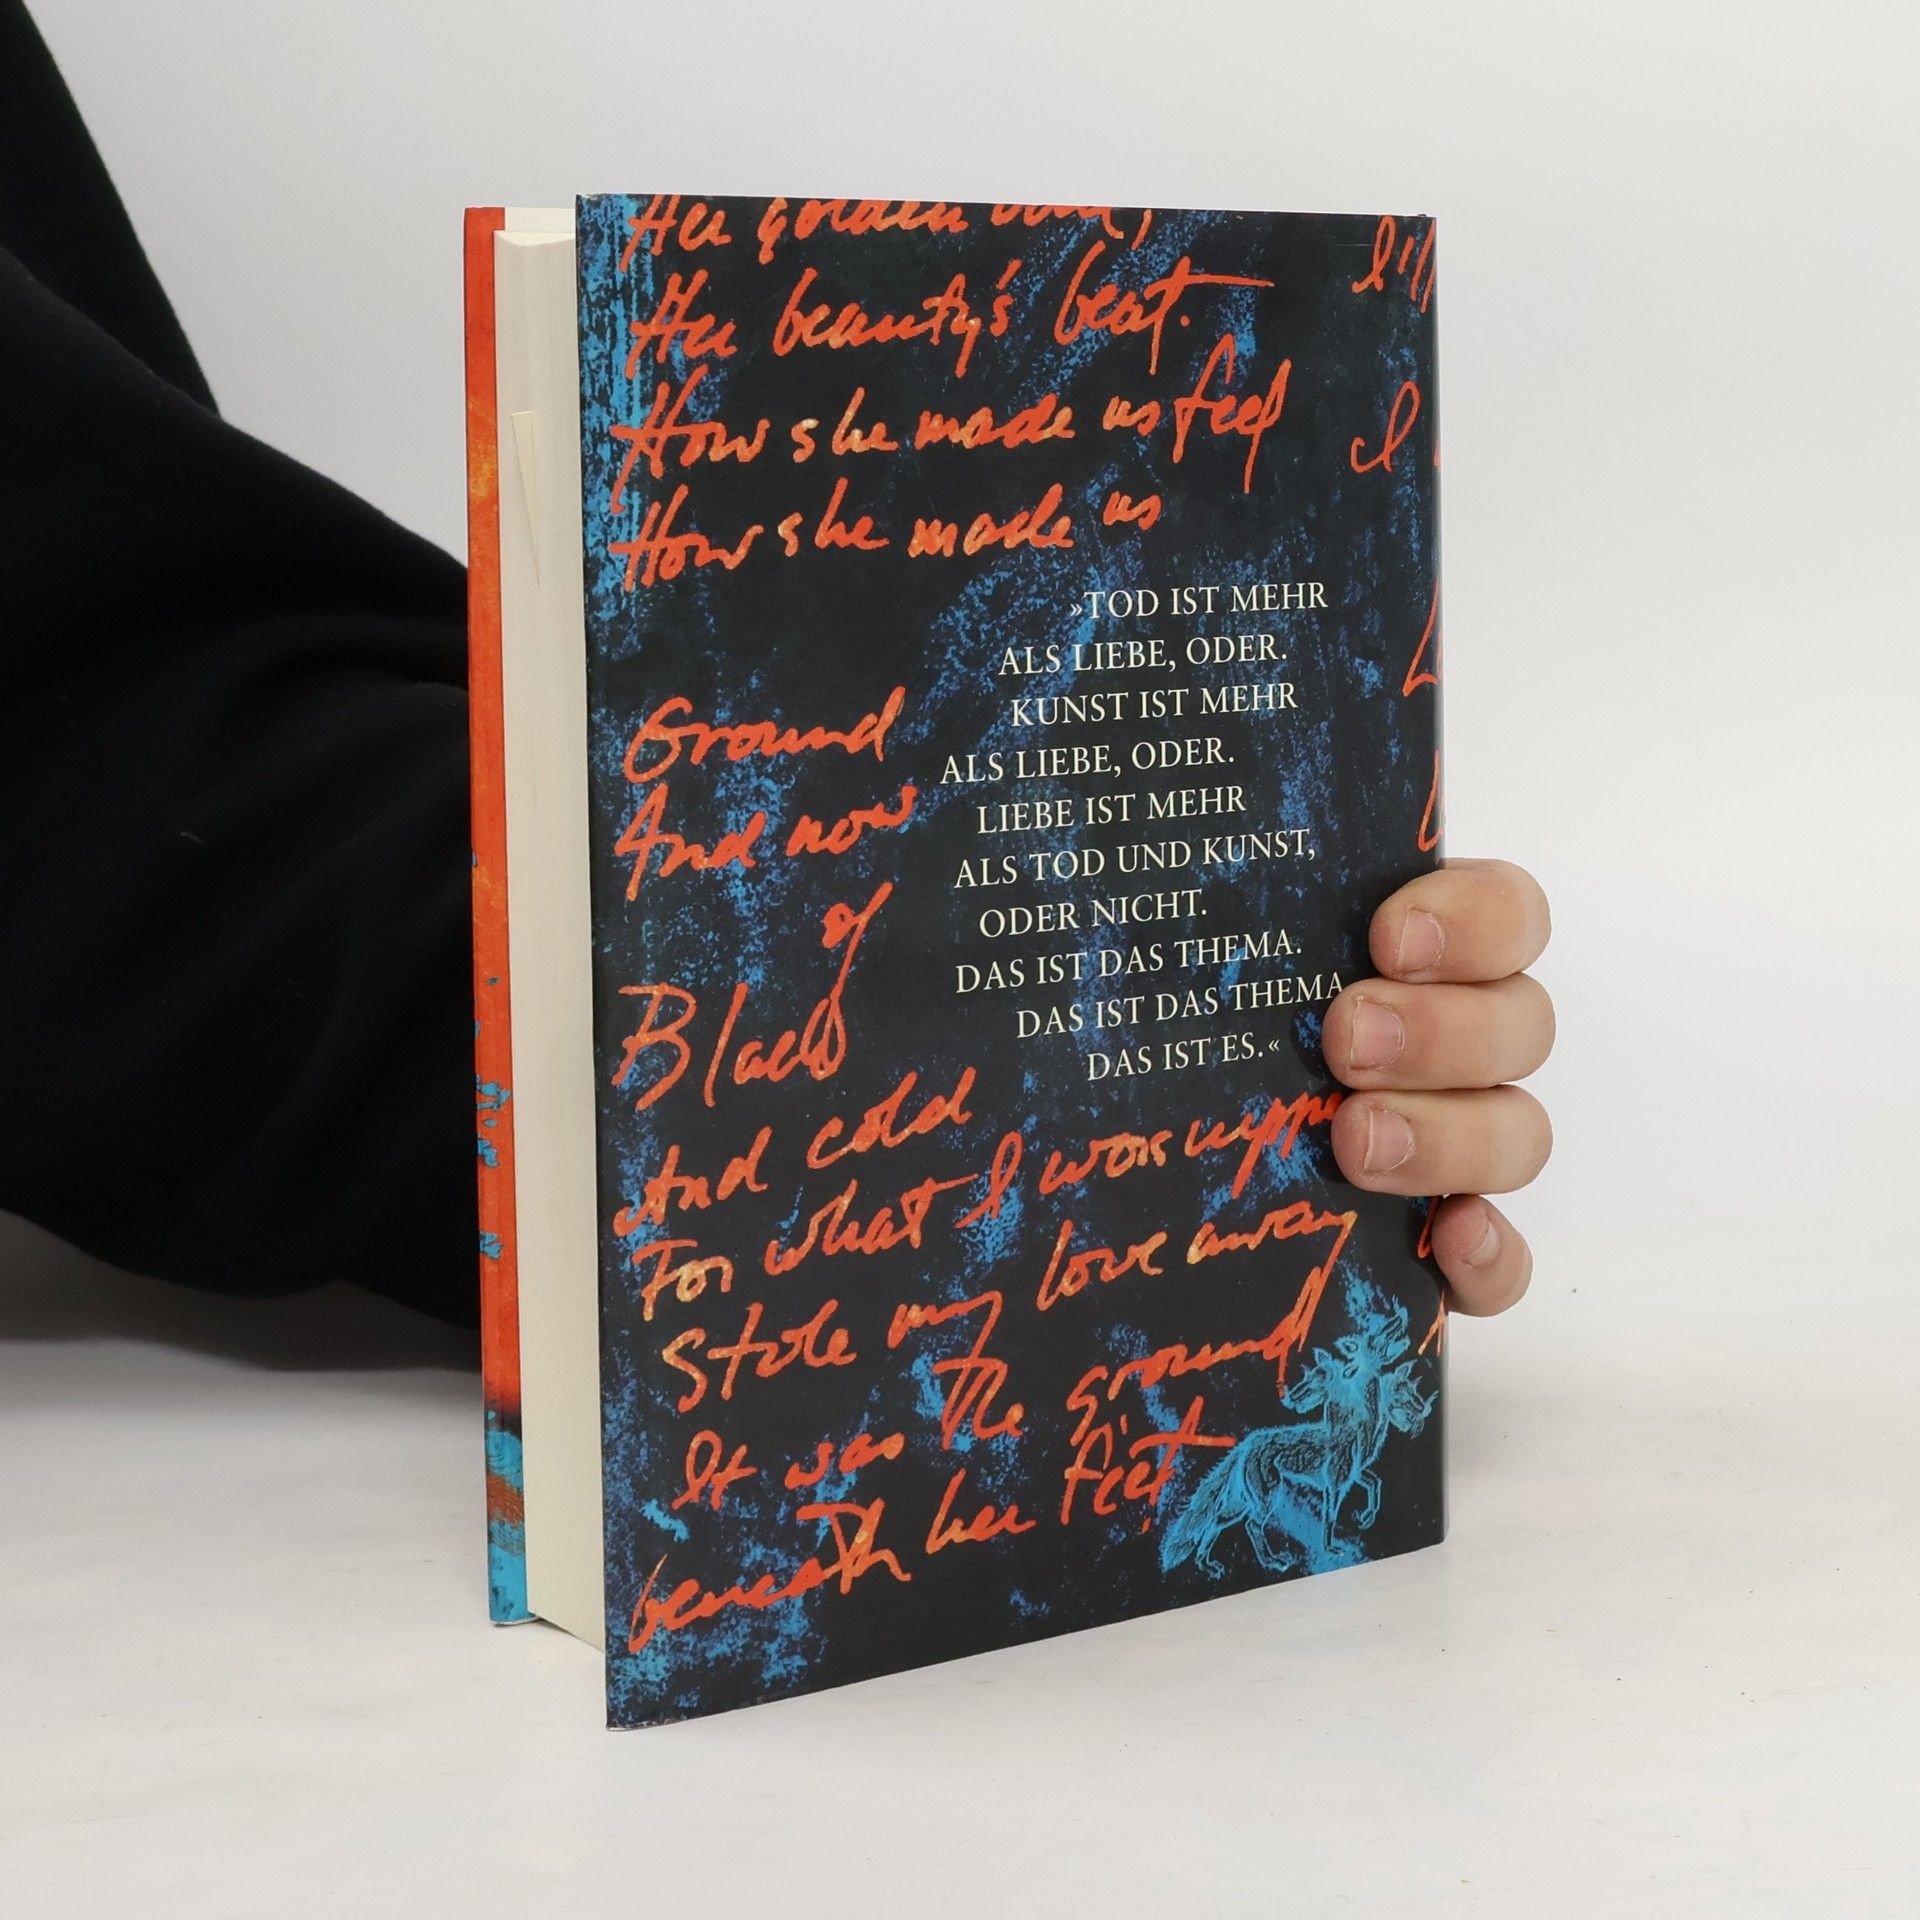 Her golden
Her beauty's beat.
How she made us feel
How she made us
»TOD IST MEHR
ALS LIEBE, ODER.
KUNST IST MEHR
ALS LIEBE, ODER.
LIEBE IST MEHR
ALS TOD UND KUNST,
ODER NICHT.
DAS IST DAS THEMA.
DAS IST DAS THEMA
DAS IST ES.«
Ground
And now
of
Black
And cold
For what I worshippe
Stole my love away
It was the ground
beneath her feet